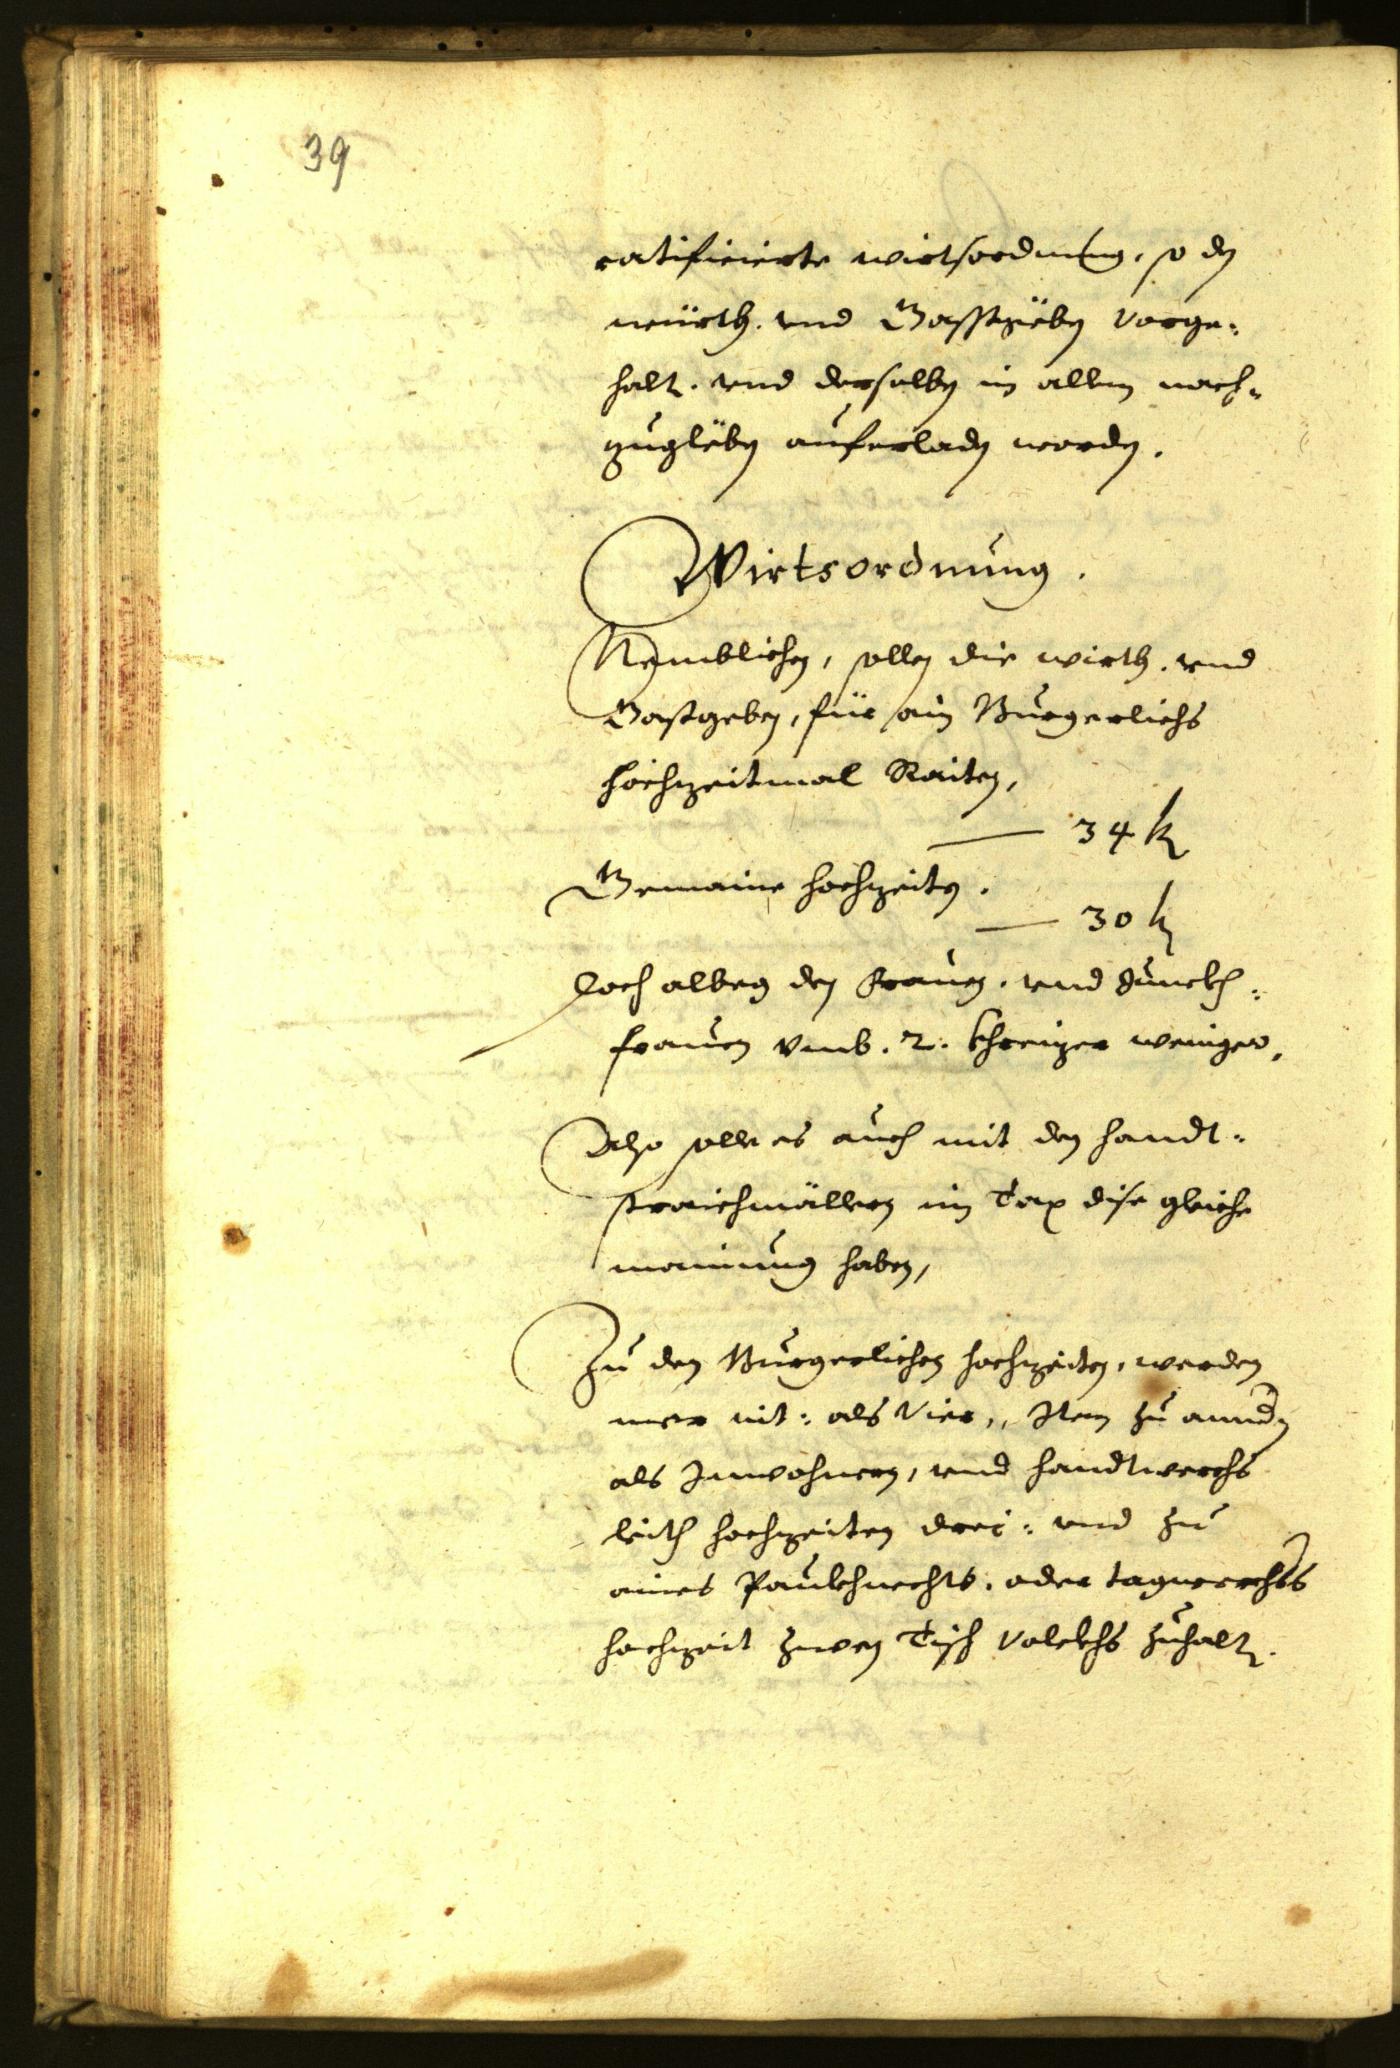 39
ratificierte wirtsordnung, so den
würth. vnd Gasstgeben vorge-
halt. vnd derselben in allem nach-
zugleben auferladen worden.
Wirtsordnung.
Nemblichen, sollen die wirth. vnd
Gastgeben, für ain Burgerlichs
Hochzeitmal Raiten,
— 34 k
Gemaine hochzeiten.
— 30 k
Doch alweg den frauen. vnd Junckh-
frauen vmb. 2. khreizer weniger,
Also solle es auch mit den handt-
straichmällern im Tax dise gleiche
mainung haben,
Zu den Burgerlichen hochzeiten, werden
mer nit: als Vier,, Item zu annd
als Inwohnern, vnd handtwerchs
leith hochzeiten drei: vnd zu
aines Paukhnechts. oder tagwerchers
hochzeit zwen Tisch volckhs zuhalt.